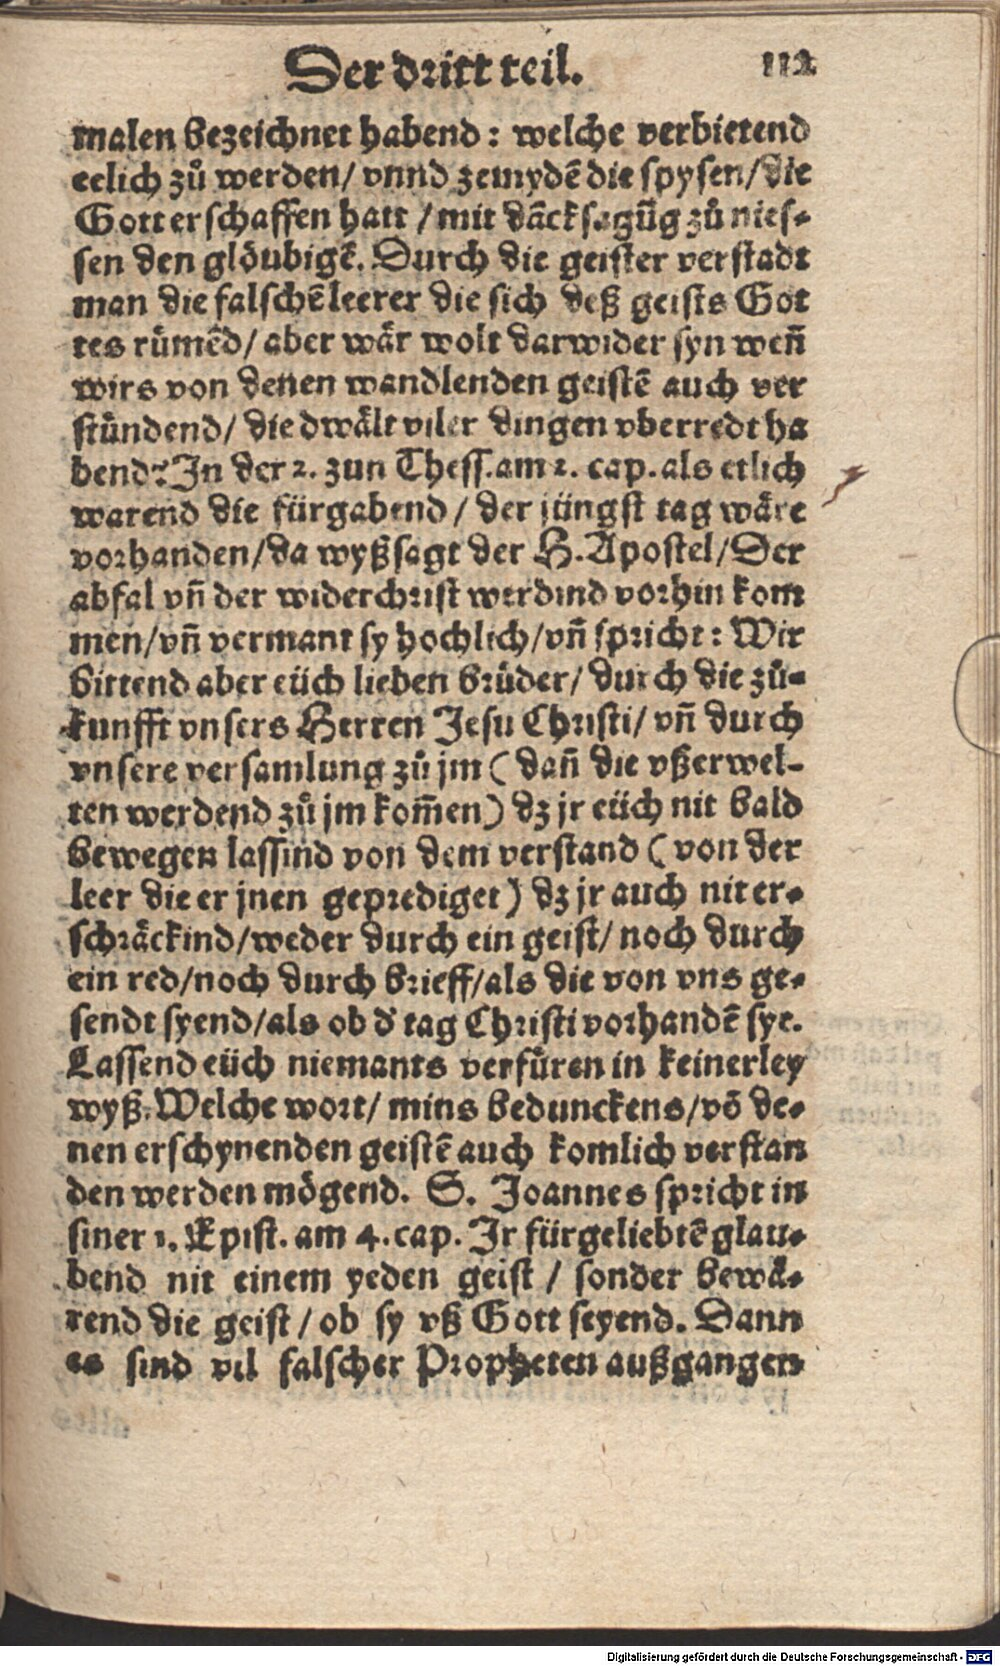 Der dritt teil. 112
malen bezeichnet habend: welche verbietend
eelich zů werden/ vnnd zemydē die spysen/ die
Gott erschaffen hatt / mit dāck sagūg zů nies-
sen den glöubigē. Durch die geister verstadt
man die falschē leerer die sich deß geists Got
tes rümēd/ aber wär wolt darwider syn weñ
wirs von denen wandlenden geistē auch ver
stündend/ die dwält viler dingen vberredt ha
bend? In der 2. zun Thess. am 2. cap. als etlich
warend die fürgabend / der jüngst tag wäre
vorhanden/ da wyßsagt der H. Apostel/ Der
abfal vñ der widerchrist werdind vorhin kom
men/ vñ vermant sy hochlich/ vñ spricht: Wir
bittend aber eüch lieben brüder/ durch die zů-
kunfft vnsers Herren Jesu Christi/ vñ durch
vnsere versamlung zů jm ( dañ die vßerwel-
ten werdend zů jm kom̄en ) dz jr eüch nit bald
bewegen lassind von dem verstand ( von der
leer die er jnen geprediget ) dz jr auch nit er-
schräckind/ weder durch ein geist/ noch durch
ein red/ noch durch brieff/ als die von vns ge-
sendt syend/ als ob d' tag Christi vorhandē sye.
Lassend eüch niemants verfüren in keinerley
wyß. Welche wort/ mins bedunckens/ vō de-
nen erschynenden geistē auch komlich verstan
den werden mögend. S. Joannes spricht in
siner 1. Epist. am 4. cap. Ir fürgeliebtē glau-
bend nit einem yeden geist / sonder bewä-
rend die geist / ob sy vß Gott seyend. Dann
es sind vil falscher Propheten außgangen
Digitalisierung gefördert durch die Deutsche Forschungsgemeinschaft - DFG